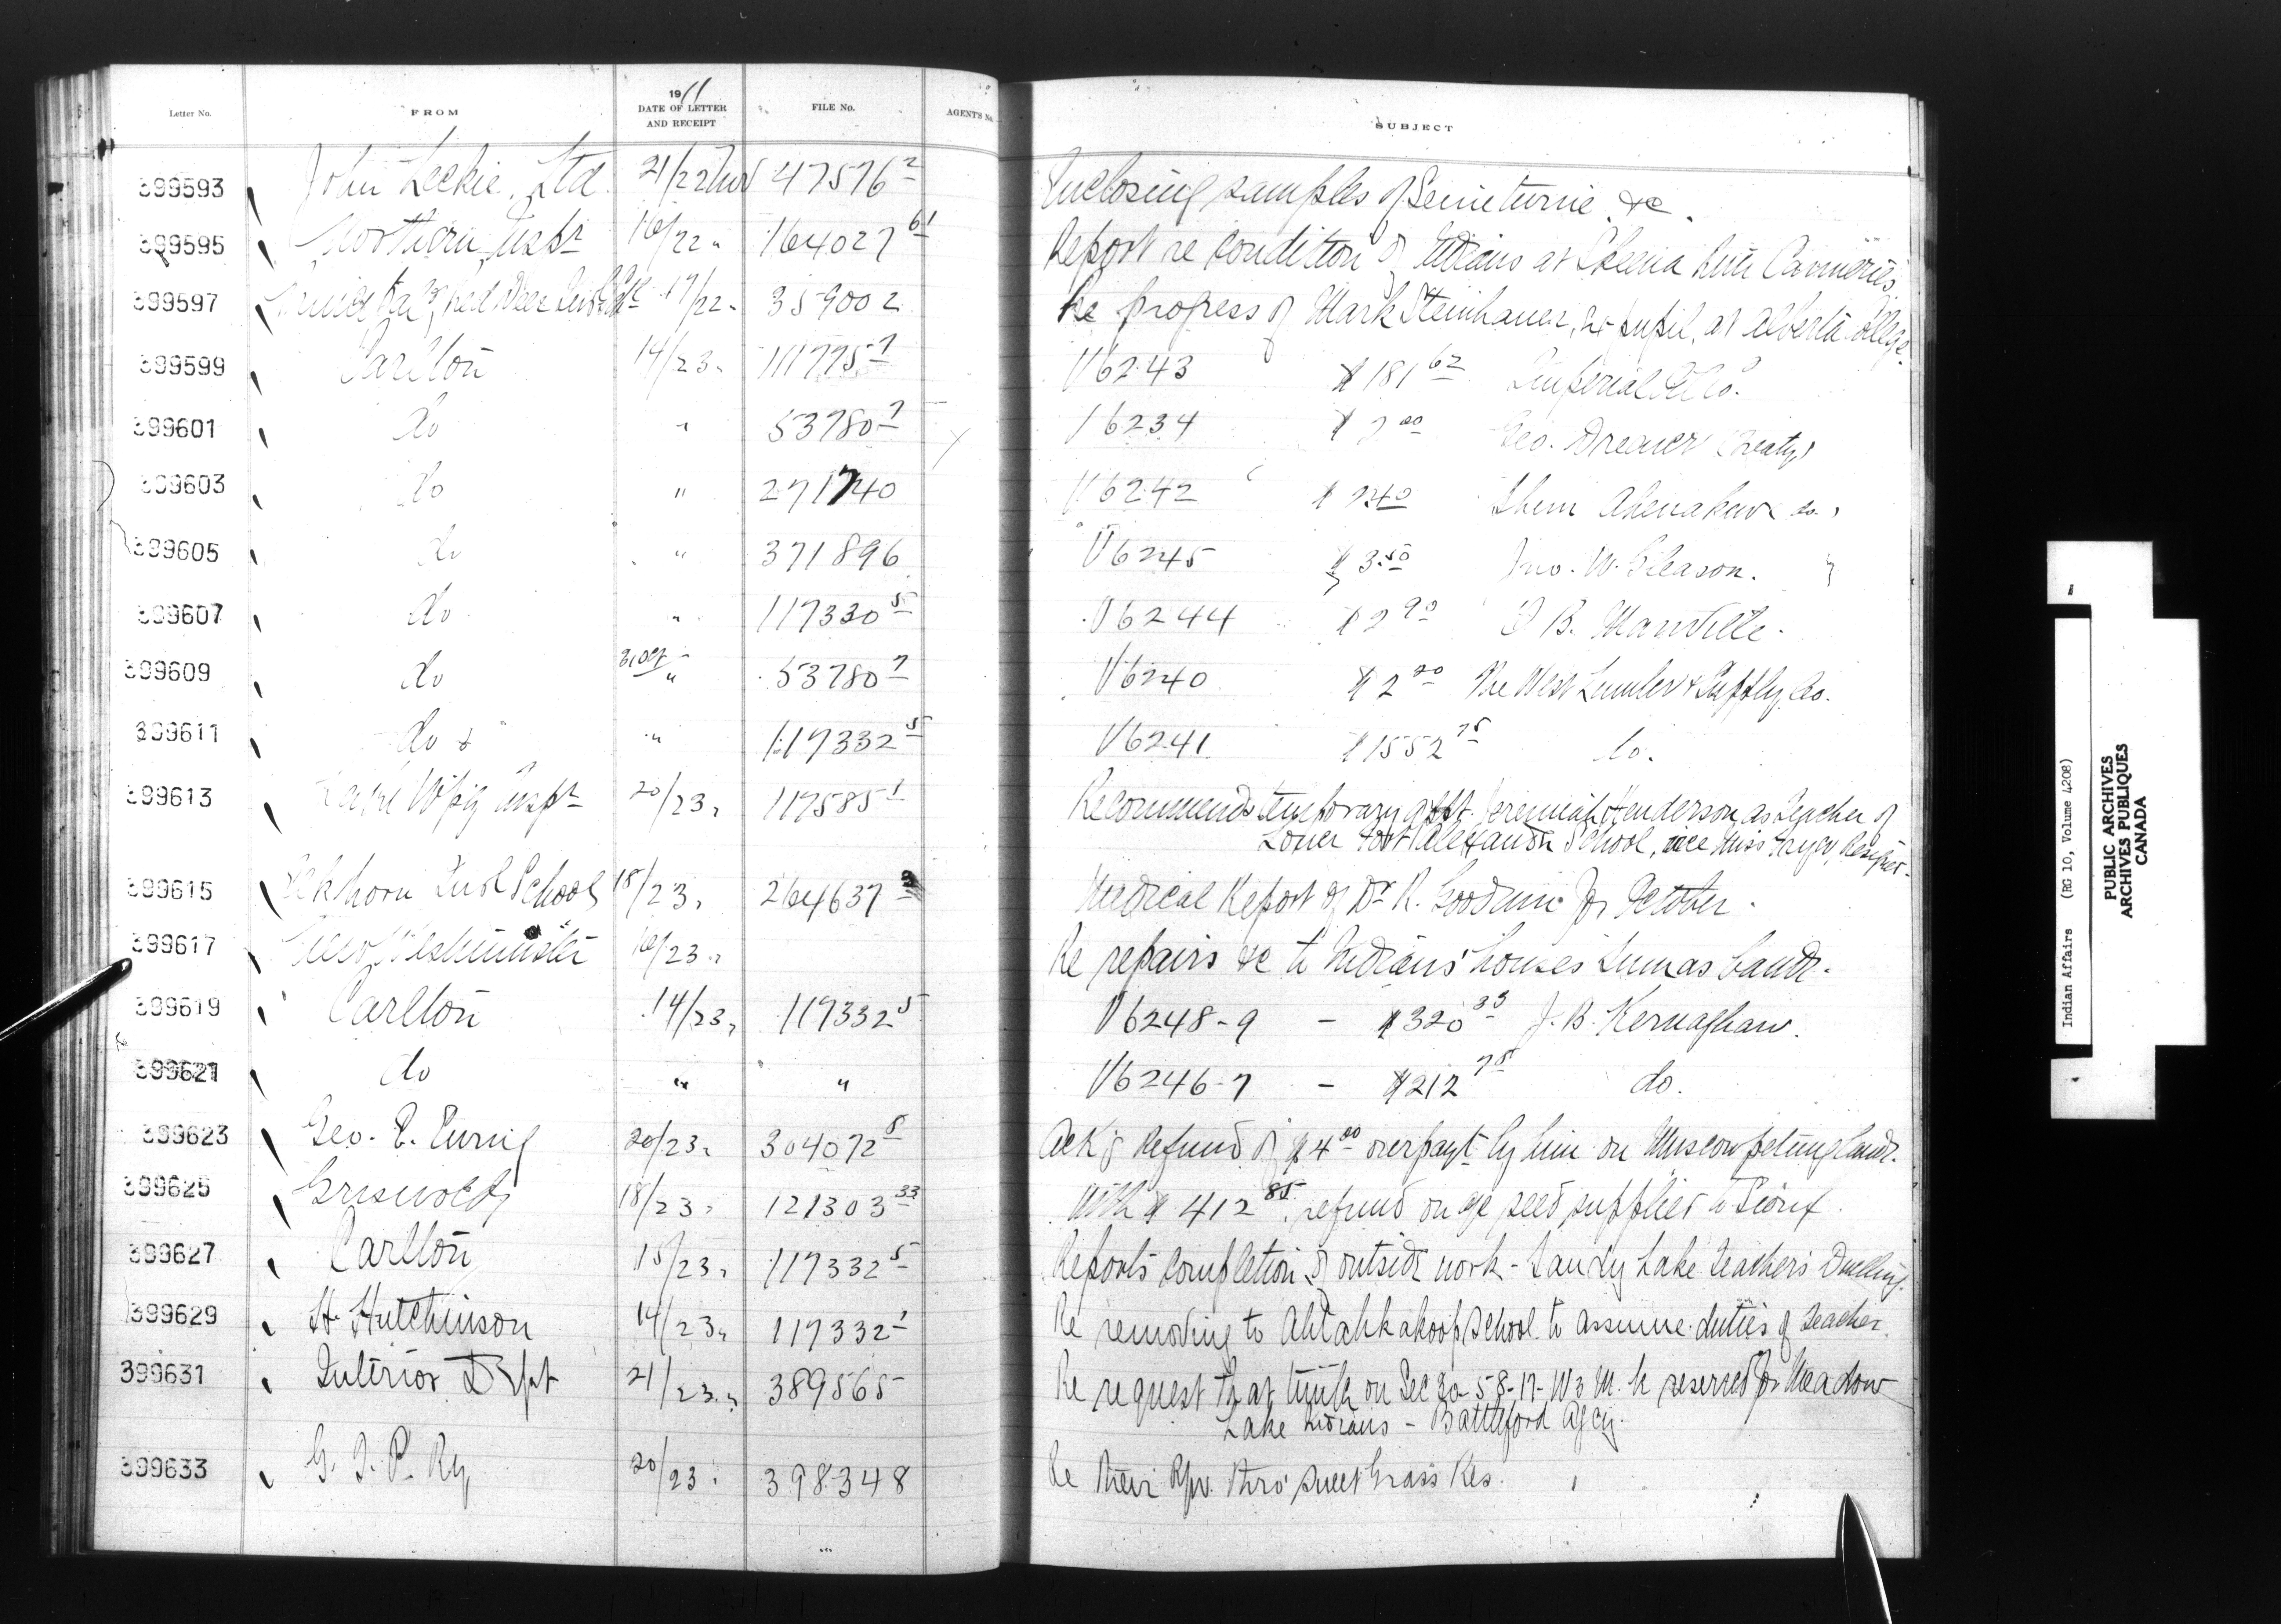 Letter No. FROM 1911 DATE OF LETTER AND RECEIPT FILE No. AGENT'S No. SUBJECT
399593 John Leckie, Ltd. 21/22 Nov 47576 2 Inclosing samples of &c.
399595 Northern Inspr 16/22 " 164027 61 Report re condition of Indians at Skeena River Canneries
399597 Red Deer 17/22 " 359002 Re progress of Mark Steinhauer, Ex pupil, at Alberta College.
399599 Carlton 14/23 " 111775 7 V6243 $181 62 Imperial Oil Co.
399601 do " 53780 7 V6234 Geo. Dreaver (Treaty)
399603 do " 271740 V6242 Shem Ahenakew do.
399605 do " 371896 V6245 $3 50 Jno. W. Gleason.
399607 do " 117330 5 V6244 $2 90 B. Manville.
399609 do 31 Oct " 53780 7 V6240 $2 20 The West Lumber & Supply Co.
399611 do " 117332 5 V6241 $1552 75 do.
399613 Lake Wpig Inspr 20/23 " 117585 1 Recommends temporary appt. Jeremiah Henderson as Teacher of
Lower Fort Alexander School, vice Miss Resigned.
399615 Elkhorn Indl School 18/23 " 264637 Medical Report of Dr R. Goodwin for October.
399617 New Westminster 16/23 " Re repairs &c to Indians' houses Sumas band.
399619 Carlton 14/23 " 117332 5 V6248-9 - $320 33 J. B. Kernaghan.
399621 do " " V6246-7 - $212 75 do.
399623 Geo. E. 20/23 " 304072 8 Ack'g Refund of $4 00 overpayt by him on Muscowpetung lands.
399625 Griswold 18/23 " 121303 33 With $412 85 refund on a/c seed supplied to Sioux.
399627 Carlton 15/23 " 117332 5 Reports completion of outside work - Sandy Lake Teacher's Dwelling.
399629 H. Hutchinson 14/23 " 117332 1 Re removing to Ahtahkakoop School to assume duties of teacher.
399631 Interior Dept 21/23 " 389565 Re request that timber on Sec 30-58-17-W3 M. be reserved for Meadow
Lake Indians - Battleford Agcy.
399633 G. T. P. Ry 20/23 " 398348 Re their Ry. thro' Sweet Grass Res.
Indian Affairs (RG 10, Volume 4208)
PUBLIC ARCHIVES
ARCHIVES PUBLIQUES
CANADA